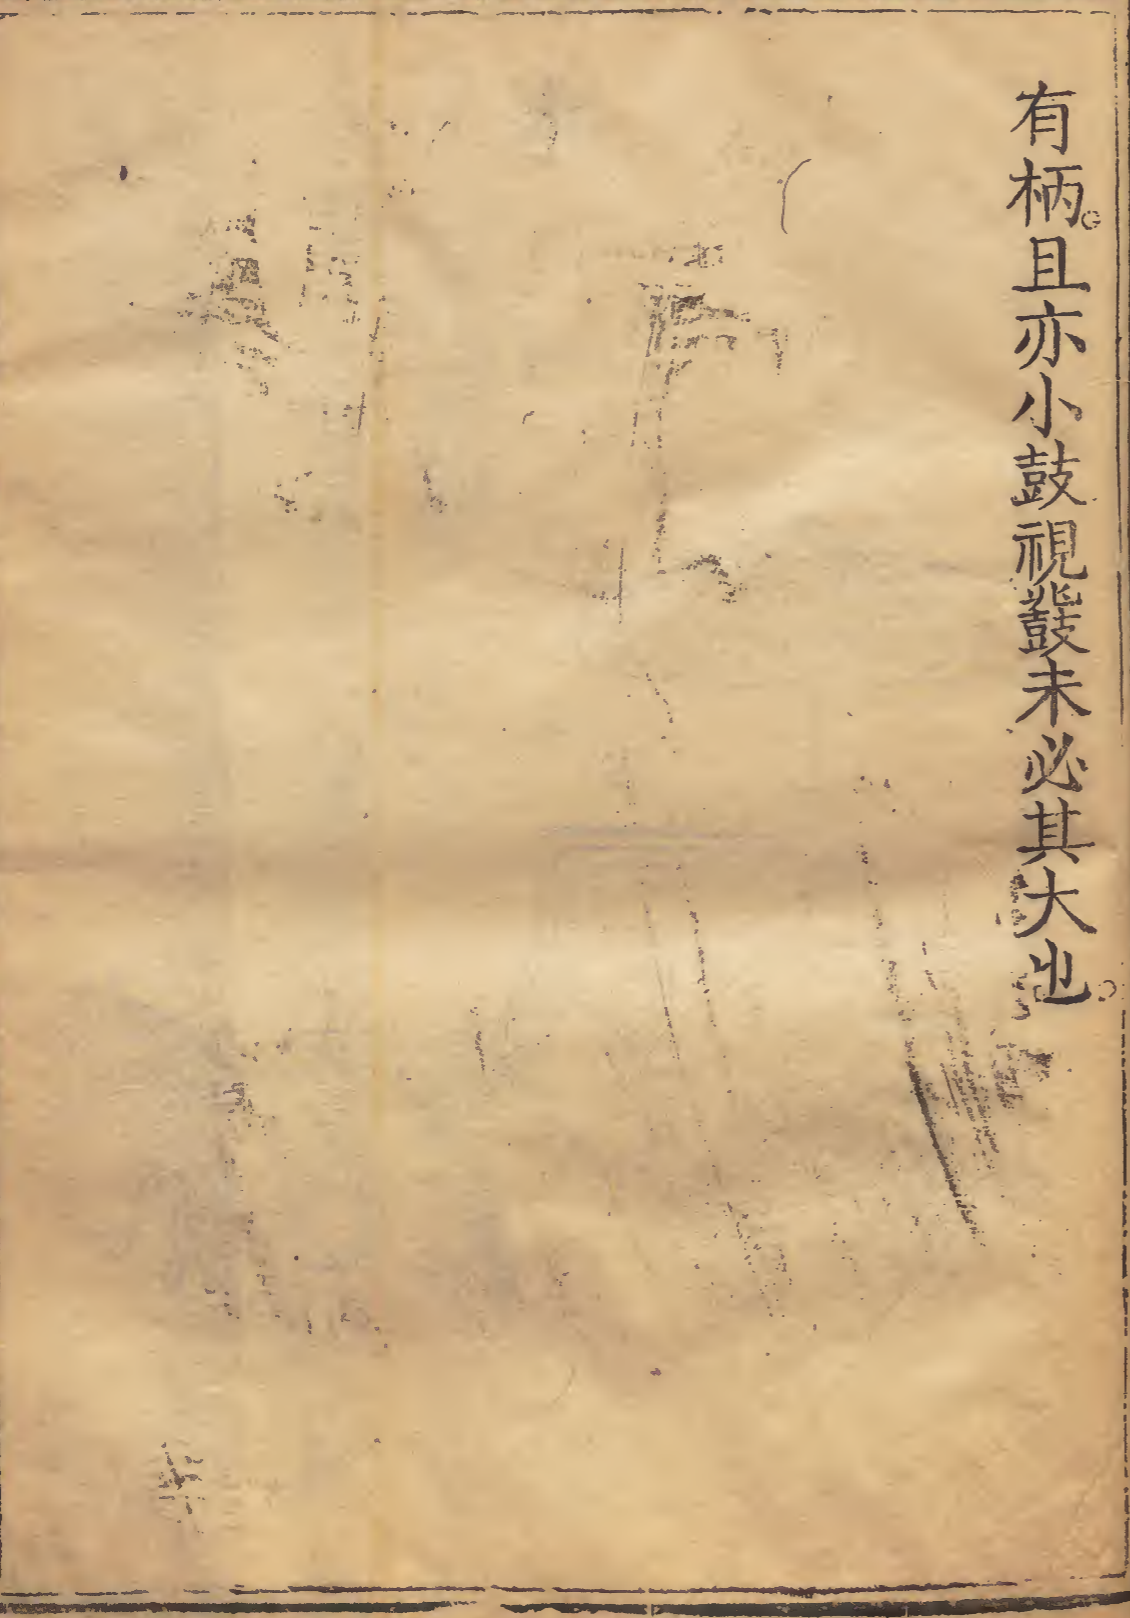 有柄。且亦小鼓視鼗未必其大也。